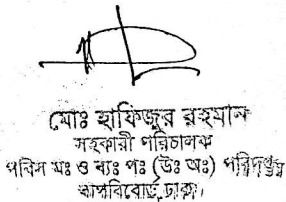 মোঃ হাফিজুর রহমান
সহকারী পরিচালক
পবিস মঃ ও ব্যঃ পঃ (উঃ অঃ) পরিদপ্তর
বাপবিবোর্ড, ঢাকা।